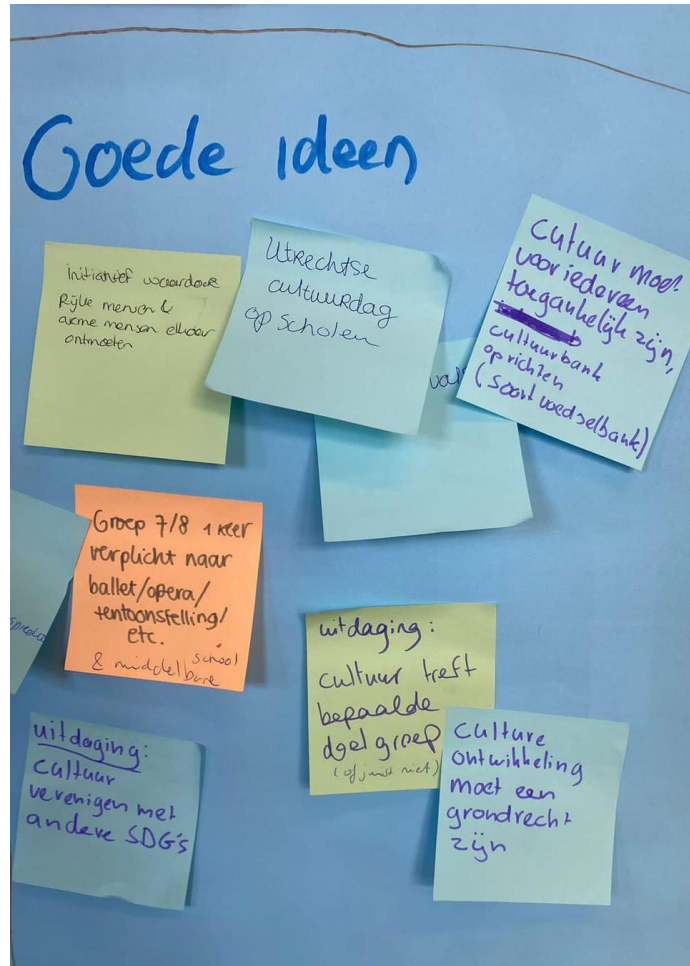 Goede ideen
Initiatief waardoor
Rijke mensen &
arme mensen elkaar
ontmoeten
Utrechtse
cultuurdag
op scholen
cutuur moet
voor iedereen
toegankelijk zijn,
cultuurbank
oprichten
(soort voedselbank)
Groep 7/8 1 keer
verplicht naar
ballet/opera/
tentoonstelling/
etc.
& middelbare school
uitdaging:
cultuur treft
bepaalde
doelgroep
(of juist niet)
uitdaging:
cultuur
verenigen met
andere SDG's
culture
ontwikkeling
moet een
grondrecht
zijn